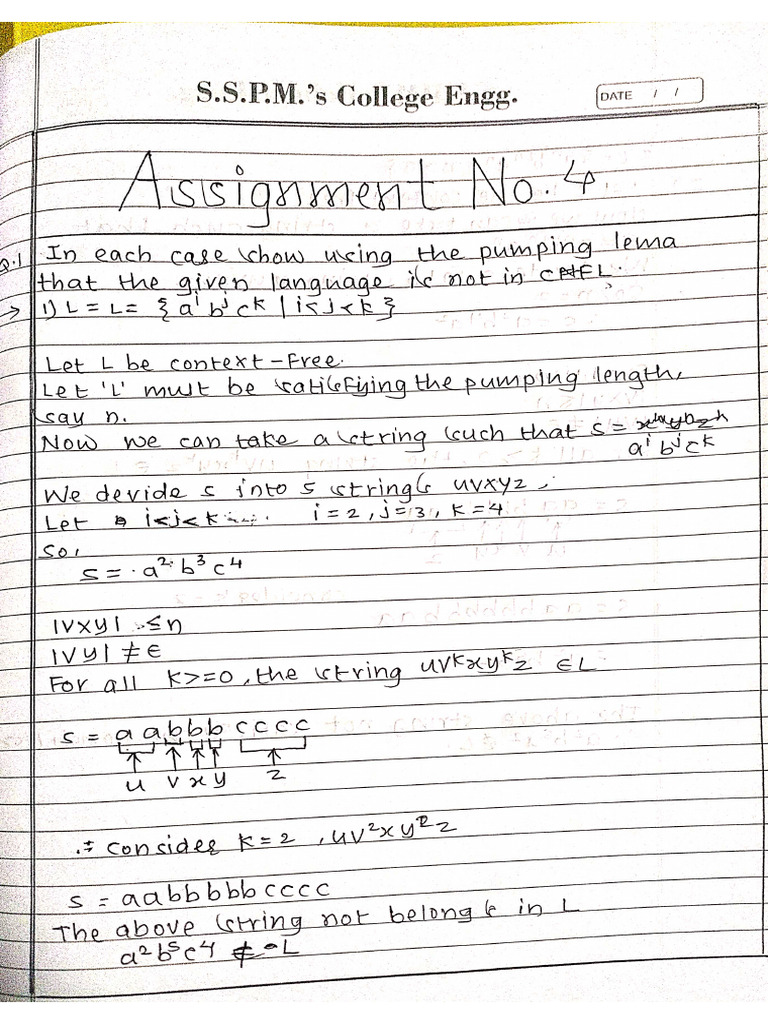 S.S.P.M.'s College Engg.
DATE / /
Assignment No. 4
Q.1 In each case show using the pumping lema
that the given language is not in CFL.
→ 1) L = L = {a^i b^j c^k | i<j<k}
Let L be context-Free.
Let 'L' must be satisfying the pumping length,
say n.
Now we can take a string such that s =
a^i b^j c^k
We devide s into 5 strings uvxyz.
Let i<j<k i=2, j=3, k=4
so,
s = a^2 b^3 c^4
|vxy| ≤ n
|vy| ≠ ε
For all k>=0, the string uv^k xy^k z ∈ L
s = a a b b b c c c c
u v x y z
∴ consider k=2, uv^2xy^2z
s = aabbbbbcccc
The above string not belongs in L
a^2 b^5 c^4 ∉ L